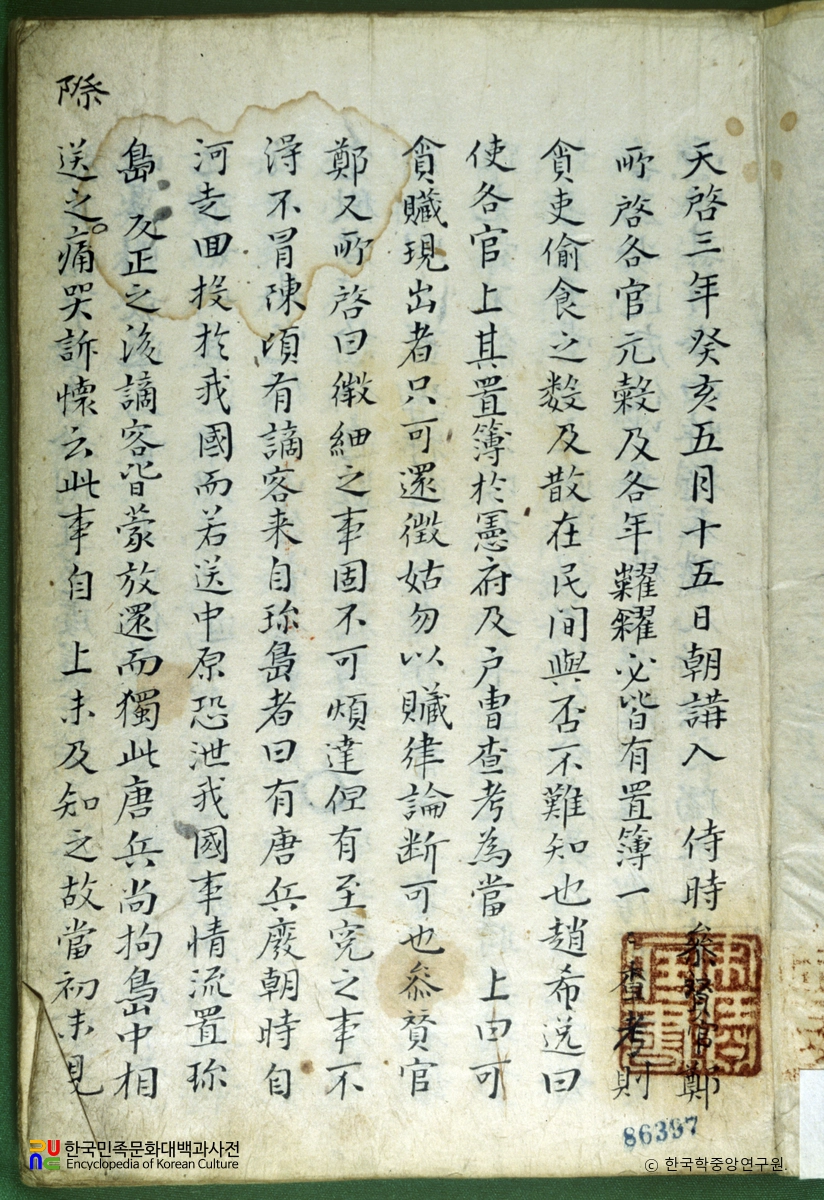 天啓三年癸亥五月十五日朝講入 侍時叅賛官鄭
所啓各官元糓及各年糶糴必皆有置簿一〻查考則
貪吏偷食之数及散在民間與否不難知也趙希逸曰
使各官上其置簿於憲府及戶曹查考為當 上曰可
貪贓現出者只可還徵姑勿以贓律論断可也叅賛官
鄭又所啓曰微細之事固不可煩達但有至寃之事不
淂不冒陳頃有謫客来自珎島者曰有唐兵廢朝時自
河走回投於我國而若送中原恐泄我國事情流置珎
島 反正之後謫客皆蒙放還而獨此唐兵尚拘島中相
際
送之痛哭訴懷云此事自 上未及知之故當初未見
86397
한국민족문화대백과사전
Encyclopedia of Korean Culture
© 한국학중앙연구원.